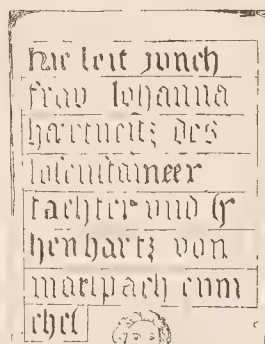 hie leit junch
frav Johanna
hartneitz des
losenstaineer
tachter vnd
lienhartz von
marspach enin
chel